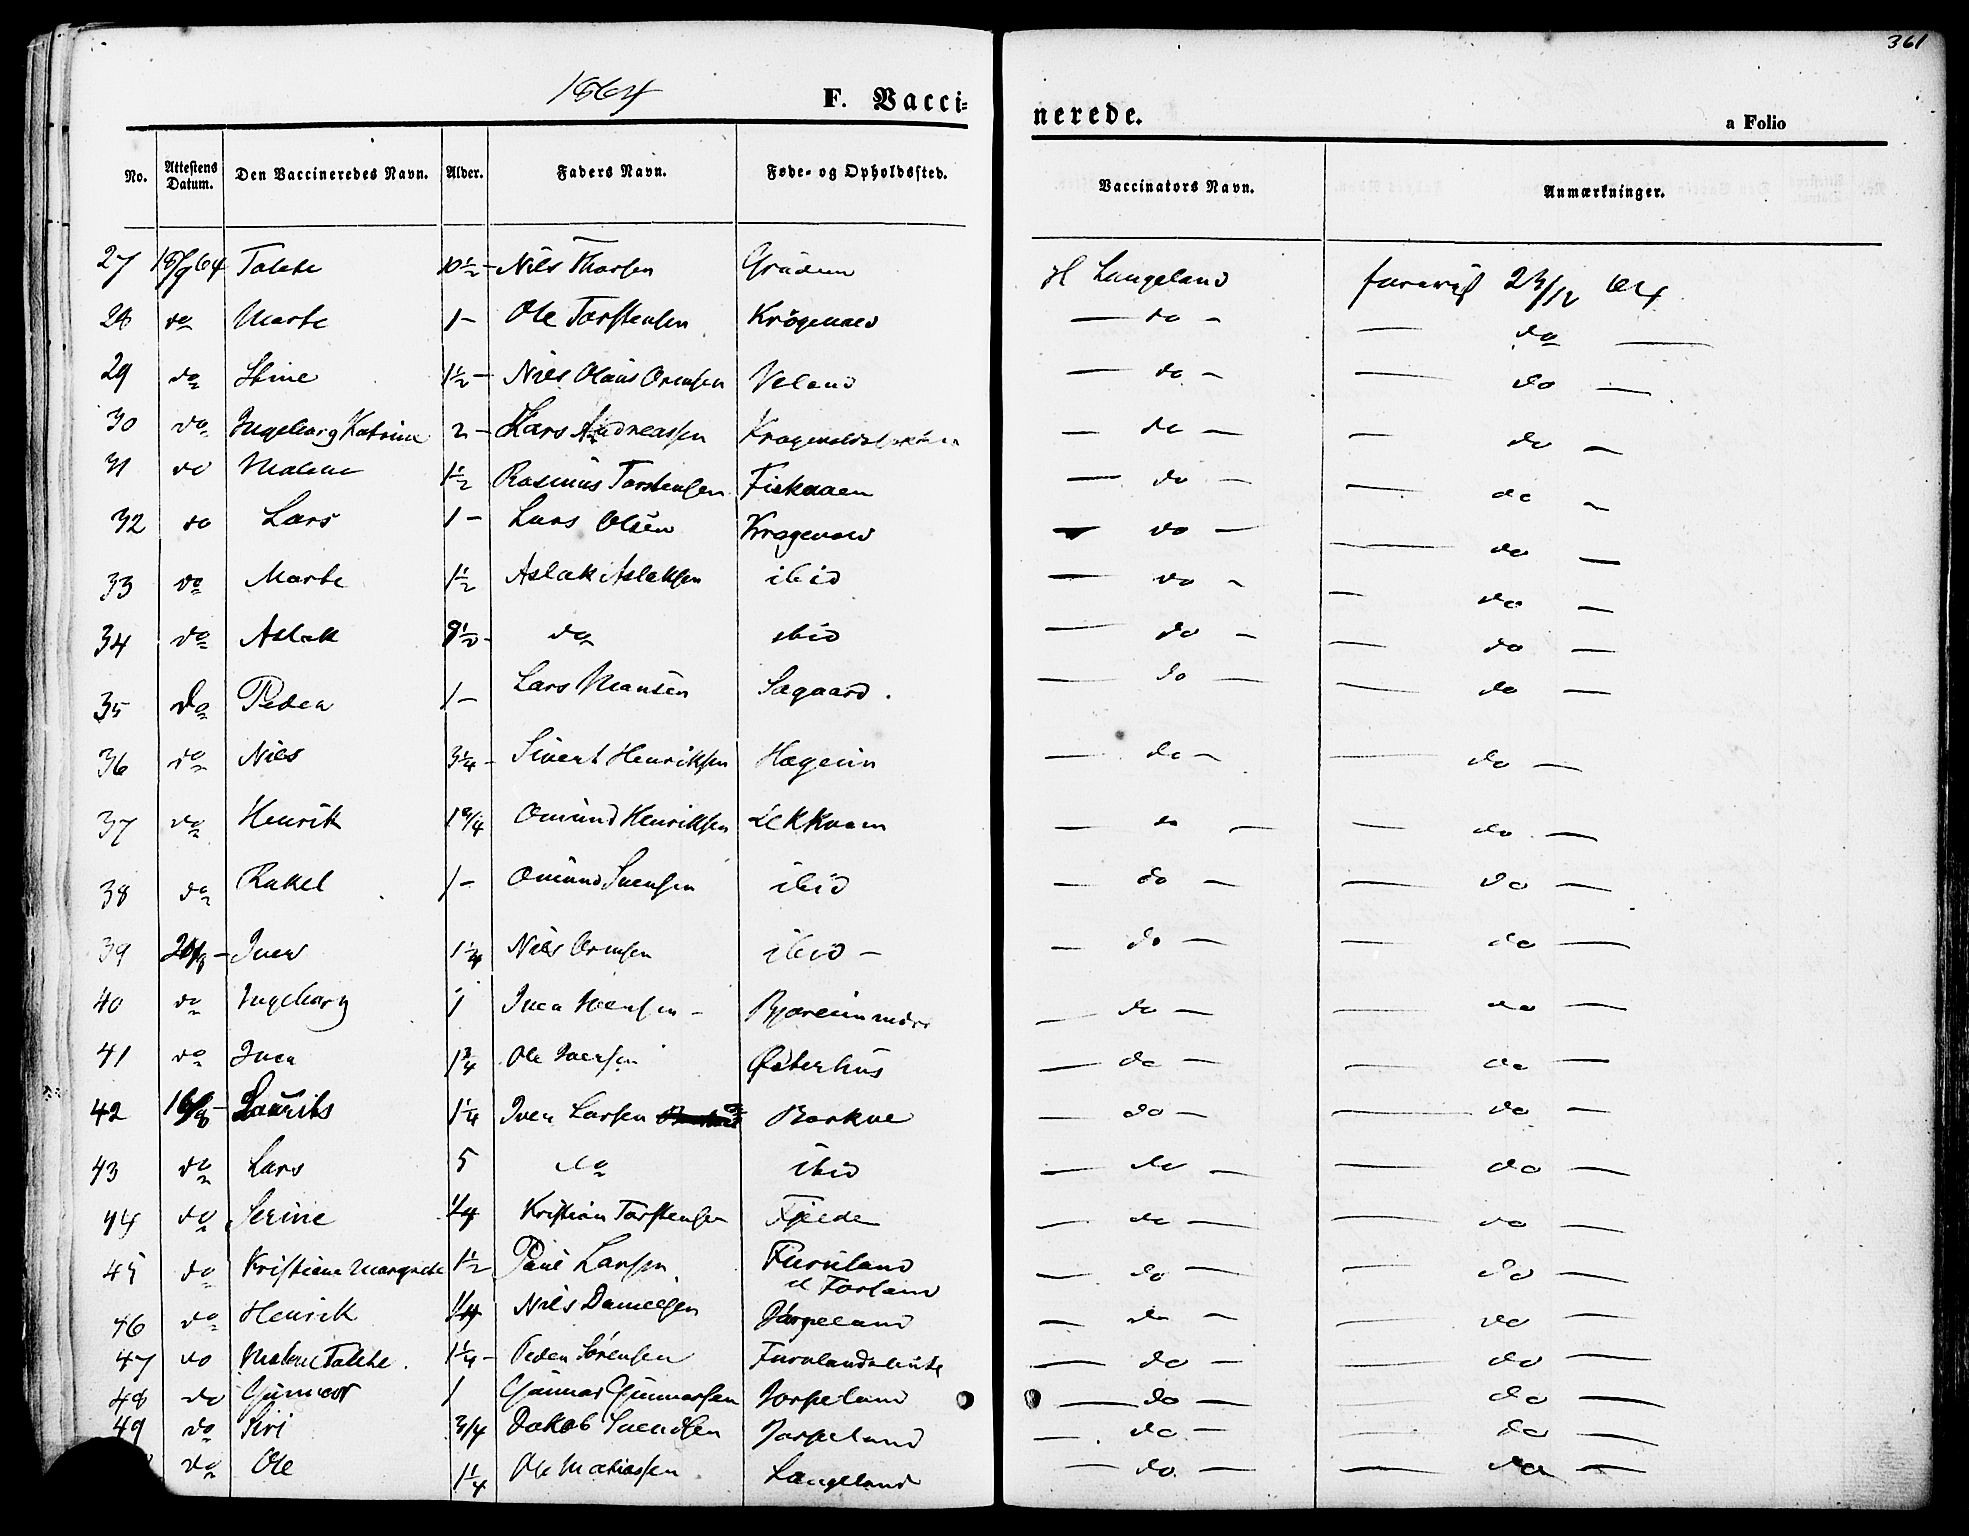 361
1864
F. Vacci-
nerede.
a Folio
No. Attestens Datum. Den Vaccineredes Navn. Alder. Faders Navn. Føde- og Opholdssted. Vaccinators Navn. Anmærkninger.
27 18/9 64 Tabte 10½ - Nils Thorsen H Langeland forevist 23/12 64
28 do Marte 1 - Ole Torstensen Krogevold — do - — do —
29 do Stine 1½ - Nils Olaus Omsen Veland — do - — do —
30 do Ingeborg Katrine 2 - Lars Andreassen — do — — do —
31 do Malene 1½ Rasmus Torstensen Fiskaaen — do - — do -
32 do Lars 1 - Lars Olsen Krogevold — do — — do —
33 do Marte 1½ Aslak Aslaksen ibid — do - — do —
34 do Aslak 8½ - do ibid — do - — do —
35 do Peder 1 - Lars Monsen Sagaard. — do — — do —
36 do Nils 3¼ - Sivert Henriksen Hægeim — do - — do —
37 do Henrik 1¾ Omund Henriksen Lekkvam — do — — do —
38 do Rakel 1 - Omund Svensen ibid — do — — do —
39 - Iver 1¼ Nils Omsen ibid - — do — — do —
40 do Ingeborg 1 Iver Iversen - — do — — do —
41 do Iver 1¾ Ole Iversen Østerhus — do — — do —
42 16/8 - Laurits 1¼ Iver Larsen Barkve — do — — do —
43 do Lars 5 do ibid — do — — do —
44 do Serine ¼ Kristian Torstensen Fjelde — do — — do —
45 do Kristiane Margrete 1½ Paul Larsen Furuland — do — — do —
et Forland
46 do Henrik ¼ Nils Danielsen Jørpeland — do - — do —
47 do Malene Tabte. 1¼ - Peder Sørensen — do — — do —
48 do Gunnar 1 Gunnar Gunnarsen Jorpeland — do — — do —
49 do Siri 3/4 Jakob Svendsen Jorpeland — do — — do —
do Ole 1¼ Ole Matiassen Langeland — do — — do —